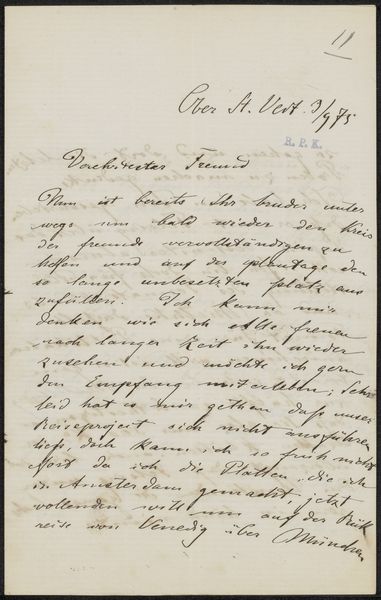 11
Ober St. Veit. 3/9 75
R. P. K.
Verehrtester Freund
Nun ist bereits Ihr bruder unter
wegs um bald wieder den Kreis
der freunde vervollständigen zu
helfen und auf der plantage den
so lange unbesetzten platz aus
zufüllen. Ich kann mir
denken wie sich Alle freuen
nach langer Zeit ihn wieder
zusehen und möchte ich gern
den Empfang miterleben; Sehr
leid hat es mir gethan daß unser
Reiseproject sich nicht ausführen
ließ, doch kann ich so früh nicht
fort da ich die Platten, die ich
in Amsterdam gemacht, jetzt
vollenden will um auf der Rük
reise von Venedig über München